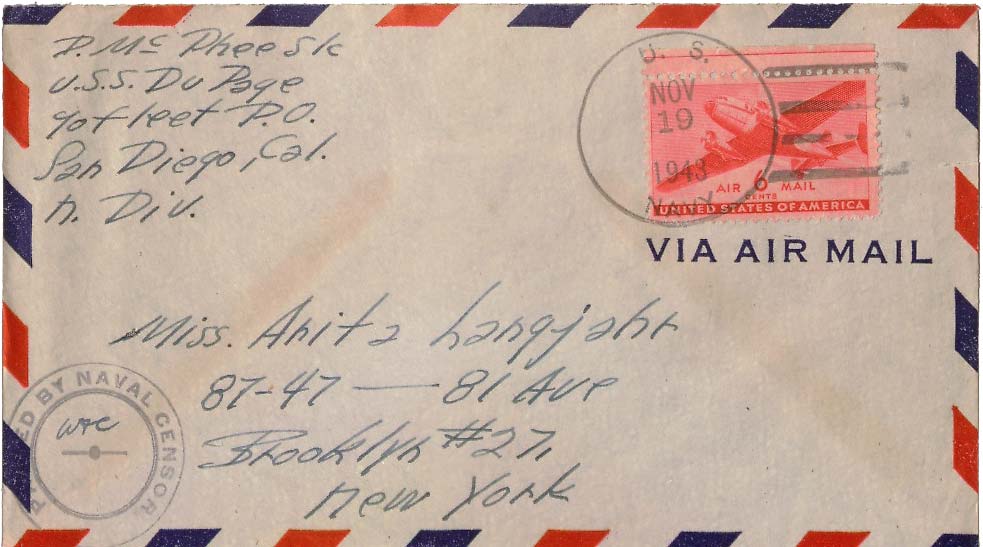 P. McPhee Sk
U.S.S. Du Page
℅ Fleet P.O.
San Diego, Cal.
N. Div.
U. S.
NOV
19
1943
NAVY
AIR 6 MAIL
CENTS
UNITED STATES OF AMERICA
VIA AIR MAIL
Miss. Anita Langjahr
87-47 — 81 Ave
Brooklyn #27,
New York
PASSED BY NAVAL CENSOR